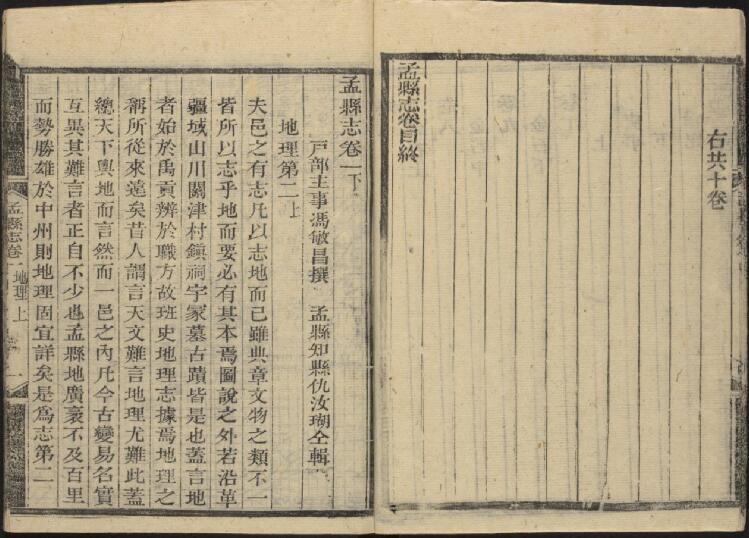 右共十卷
孟縣志卷目終
孟縣志卷一下
戶部主事馮敏昌撰 孟縣知縣仇汝瑚仝輯
地理第二上
夫邑之有志凡以志地而已雖典章文物之類不一
皆所以志乎地而要必有其本焉圖說之外若沿革
疆域山川關津村鎮祠宇冢墓古蹟皆是也蓋言地
者始於禹貢辨於職方故班史地理志據焉地理之
稱所從來遠矣昔人謂言天文難言地理尤難此蓋
總天下輿地而言然而一邑之內凡今古變易名實
互異其難言者正自不少也孟縣地廣袤不及百里
而勢勝雄於中州則地理固宜詳矣是為志第二
孟縣志卷一 地理上 一